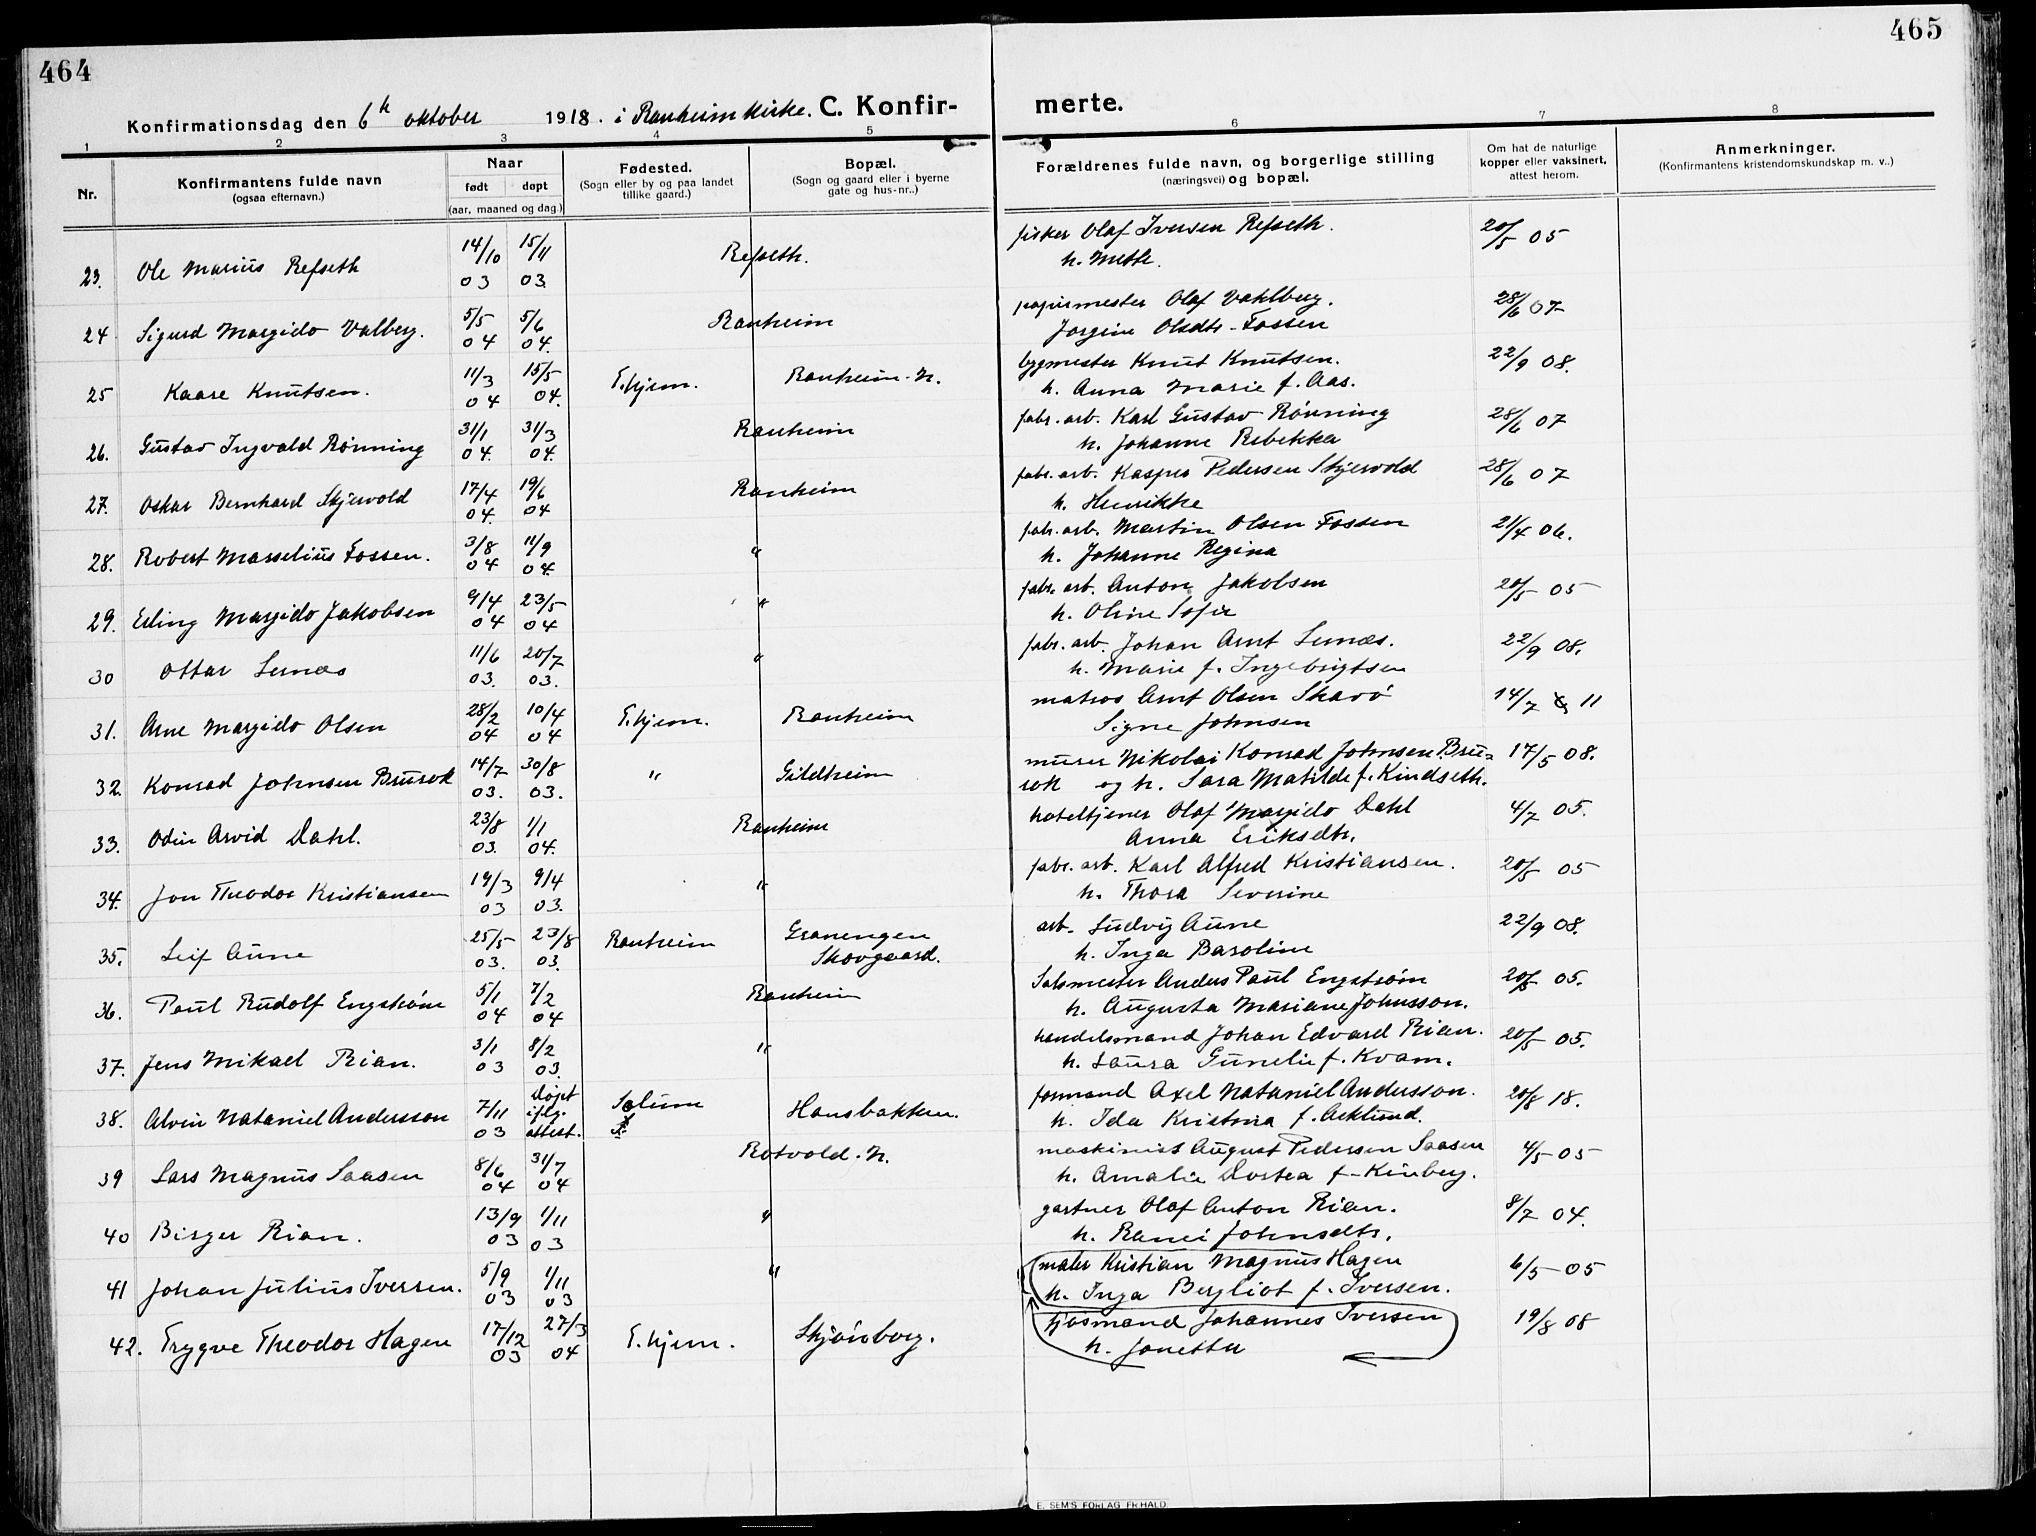 464
465
Konfirmationsdag den 6te oktober 1918. i Ranheim kirke. C. Konfir-
merte.
1 2 3 4 5 6 7 8
Nr.
Konfirmantens fulde navn
(ogsaa efternavn.)
Naar
født døpt
(aar, maaned og dag.)
Fødested.
(Sogn eller by og paa landet
tillike gaard.)
Bopæl.
(Sogn og gaard eller i byerne
gate og hus-nr..)
Forældrenes fulde navn, og borgerlige stilling
(næringsvei) og bopæl.
Om hat de naturlige
kopper eller vaksinert,
attest herom.
Anmerkninger.
(Konfirmantens kristendomskundskap m. v..)
23. Ole Marius Refseth 14/10 03 15/11 03. Refseth. fisker Olaf Iversen Refseth. 20/5 05
h. Mette.
24 Sigurd Margido Valberg. 5/5 04 5/6 04. Ranheim papirmester Olaf Vahlberg. 28/6 07
Jorgine Olsdtr Fossen
25 Kaare Knutsen. 11/3 04 15/5 04. T.hjem. Ranheim. N. bygmester Knut Knutsen. 22/9 08.
h. Anna Marie f. Aas.
26. Gustav Ingvald Rønning 31/1 04. 31/3 04. Ranheim fabr. arb. Karl Gustav Rønning 28/6 07
h. Johanne Rebekka
27. Oskar Bernhard Skjervold 17/4 04. 19/6 04 Ranheim fabr. arb. Kasper Pedersen Skjervold 28/6 07
h. Henrikke
28. Robert Marselius Fossen. 3/8 04 11/9 04. " fabr. arb. Martin Olsen Fossen 21/4 06.
h. Johanne Regina
29. Erling Margido Jakobsen 9/4 04 23/5 04 " fabr. arb. Anton Jakobsen 20/5 05
h. Oline Sofie
30 Ottar Lernæs 11/6 03. 20/7 03. " fabr. arb. Johan Arnt Lernæs. 22/9 08.
h. Marie f. Ingebrigtsen
31. Arne Margido Olsen 28/2 04 10/4 04 T.hjem. Ranheim matros Arnt Olsen Skarø 14/7 11
Signe Johnsen
32. Konrad Johnsen Brurok 14/7 03. 30/8 03. " Gildheim murer Nikolai Konrad Johnsen Bru= 17/5 08.
rok og h. Sara Matilde f. Kindseth.
33. Odin Arvid Dahl. 23/8 03. 1/1 04. Ranheim hoteltjener Olaf Margido Dahl 4/7 05.
Anna Eriksdtr.
34. Jon Theodor Kristiansen 19/3 03 9/4 03. " fabr. arb. Karl Alfred Kristiansen. 20/5 05
h. Thora Severine
35. Leif Aune 25/5 03. 23/8 03. Ranheim Granengen arb. Ludvig Aune 22/9 08.
Skovgaard. h. Inga Baroline
36. Paul Rudolf Engstrøm 5/1 04 7/2 04 Ranheim Salsmester Anders Paul Engstrøm 20/5 05.
h. Augusta Mariane Johnsson.
37. Jens Mikael Rian. 3/1 03 8/2 03. " handelsmand Johan Edvard Rian. 20/5 05.
h. Laura Gunelie f. Kvam.
38. Alvin Nataniel Andersson 7/11 03 Døpt iflg. attest. Solum Hansbakken. formand Axel Nataniel Andersson. 20/8 18.
h. Ida Kristina f. Aeklund.
39 Lars Magnus Saasen 8/6 04 31/7 04 Rotvold. N. maskinist August Pedersen Saasen 4/5 05
h. Amalie Dortea f. Kinberg.
40 Birger Rian. 13/9 03 1/11 03 " gartner Olaf Anton Rian. 8/7 04.
h. Ranei Johnsdtr.
41 Johan Julius Iversen. 5/9 03 1/11 03 " maler Kristian Magnus Hagen 6/5 05
h. Inga Bergliot f. Iversen.
42. Trygve Theodor Hagen 17/12 03 27/3 04 T.hjem. Skjønborg. fjøsmand Johannes Iversen 19/8 08
h. Jonetta
E. SEM'S FORLAG FR.HALD